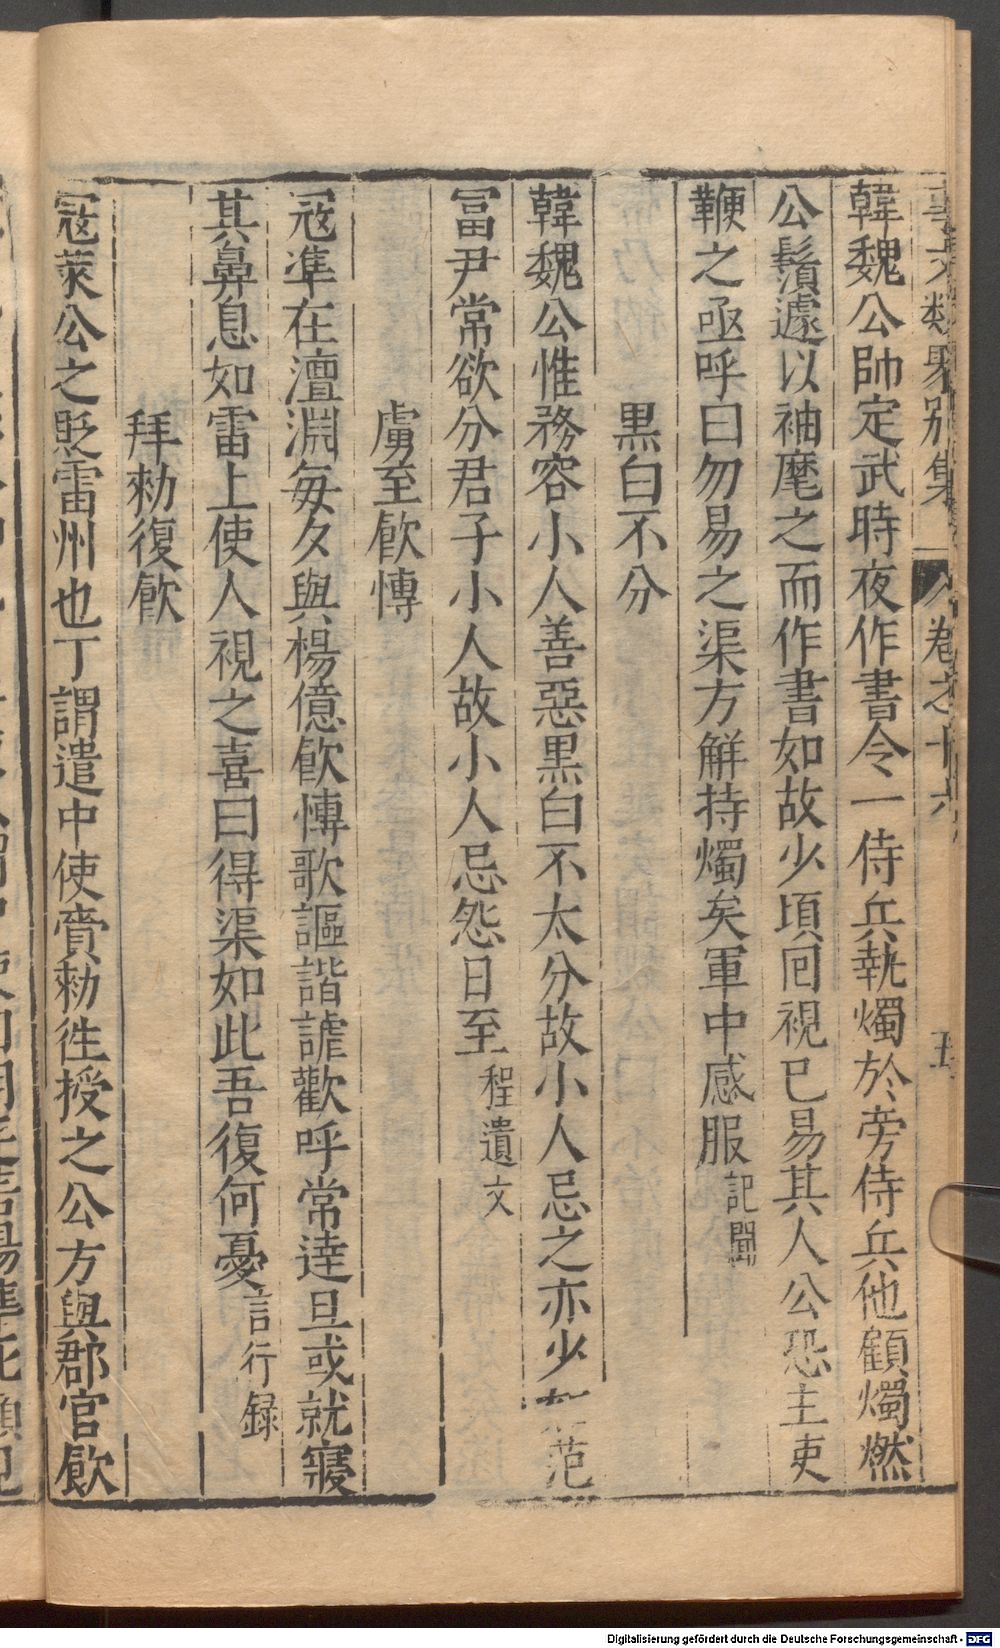 事文類聚別集 卷之十六 五
韓魏公帥定武時夜作書令一侍兵執燭於旁侍兵他顧燭燃
公鬚遽以袖麾之而作書如故少頃回視已易其人公恐主吏
鞭之亟呼曰勿易之渠方觧持燭矣軍中感服記聞
黒白不分
韓魏公惟務容小人善惡黒白不太分故小人忌之亦少如范
冨尹常欲分君子小人故小人忌怨日至程遺文
虜至飲慱
冦準在澶淵每夕與楊億飲慱歌謳諧謔歡呼常逹旦或就寢
其鼻息如雷上使人視之喜曰得渠如此吾復何憂言行録
拜勑復飲
冦萊公之貶雷州也丁謂遣中使賫勑徃授之公方與郡官飲
Digitalisierung gefördert durch die Deutsche Forschungsgemeinschaft - DFG